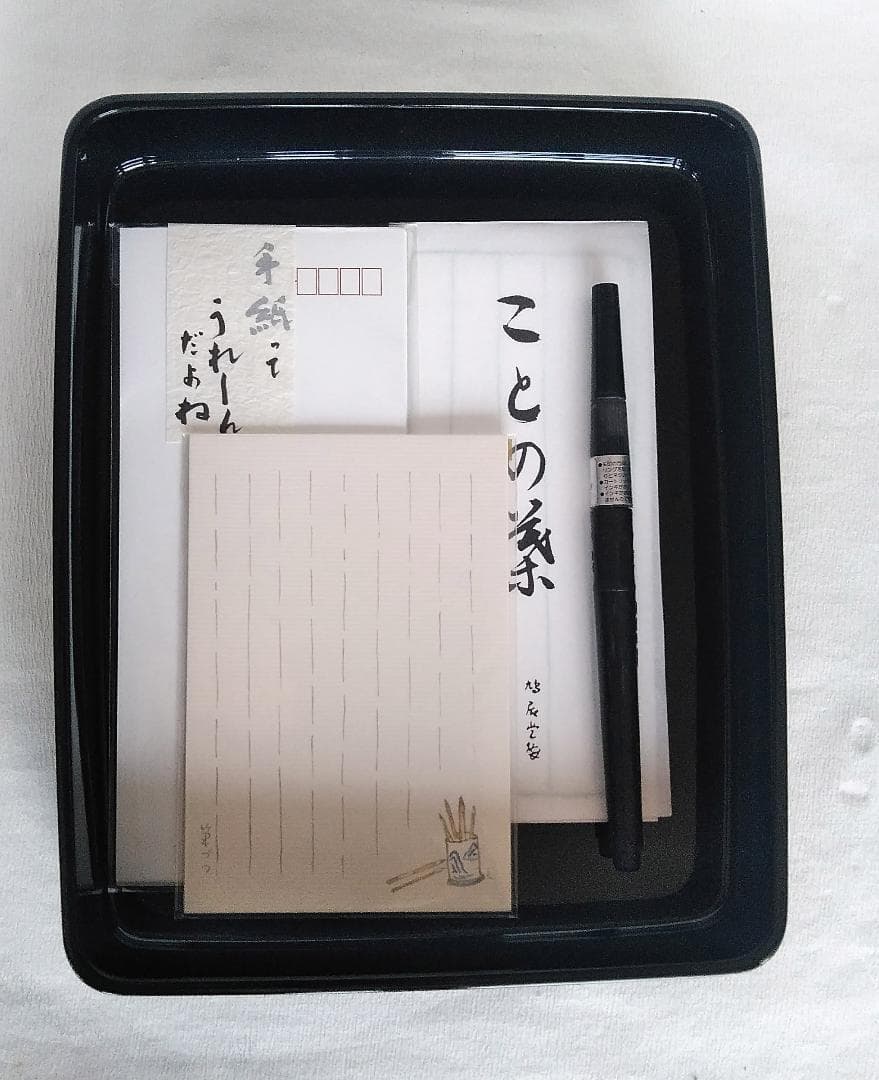 手紙って
うれーん
だよね
ことの葉
鳩居堂製
筆づつ